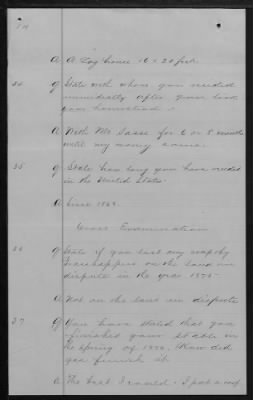 A A Log house 16 x 20 feet.
34 Q State with whom you resided
immediately after you took
your homestead.
A With Mr. Sasse for 6 or 8 months
until my money came.
35 Q State how long you have resided
in the United States
A Since 1869
Cross Examination
36 Q State if you lost any crop by
Grasshoppers on the land in
dispute in the year 1875
A Not on the land in dispute
37 Q You have stated that you
finished your stable in
the Spring of 1876. How did
you finish it.
A The best I could. I put a roof